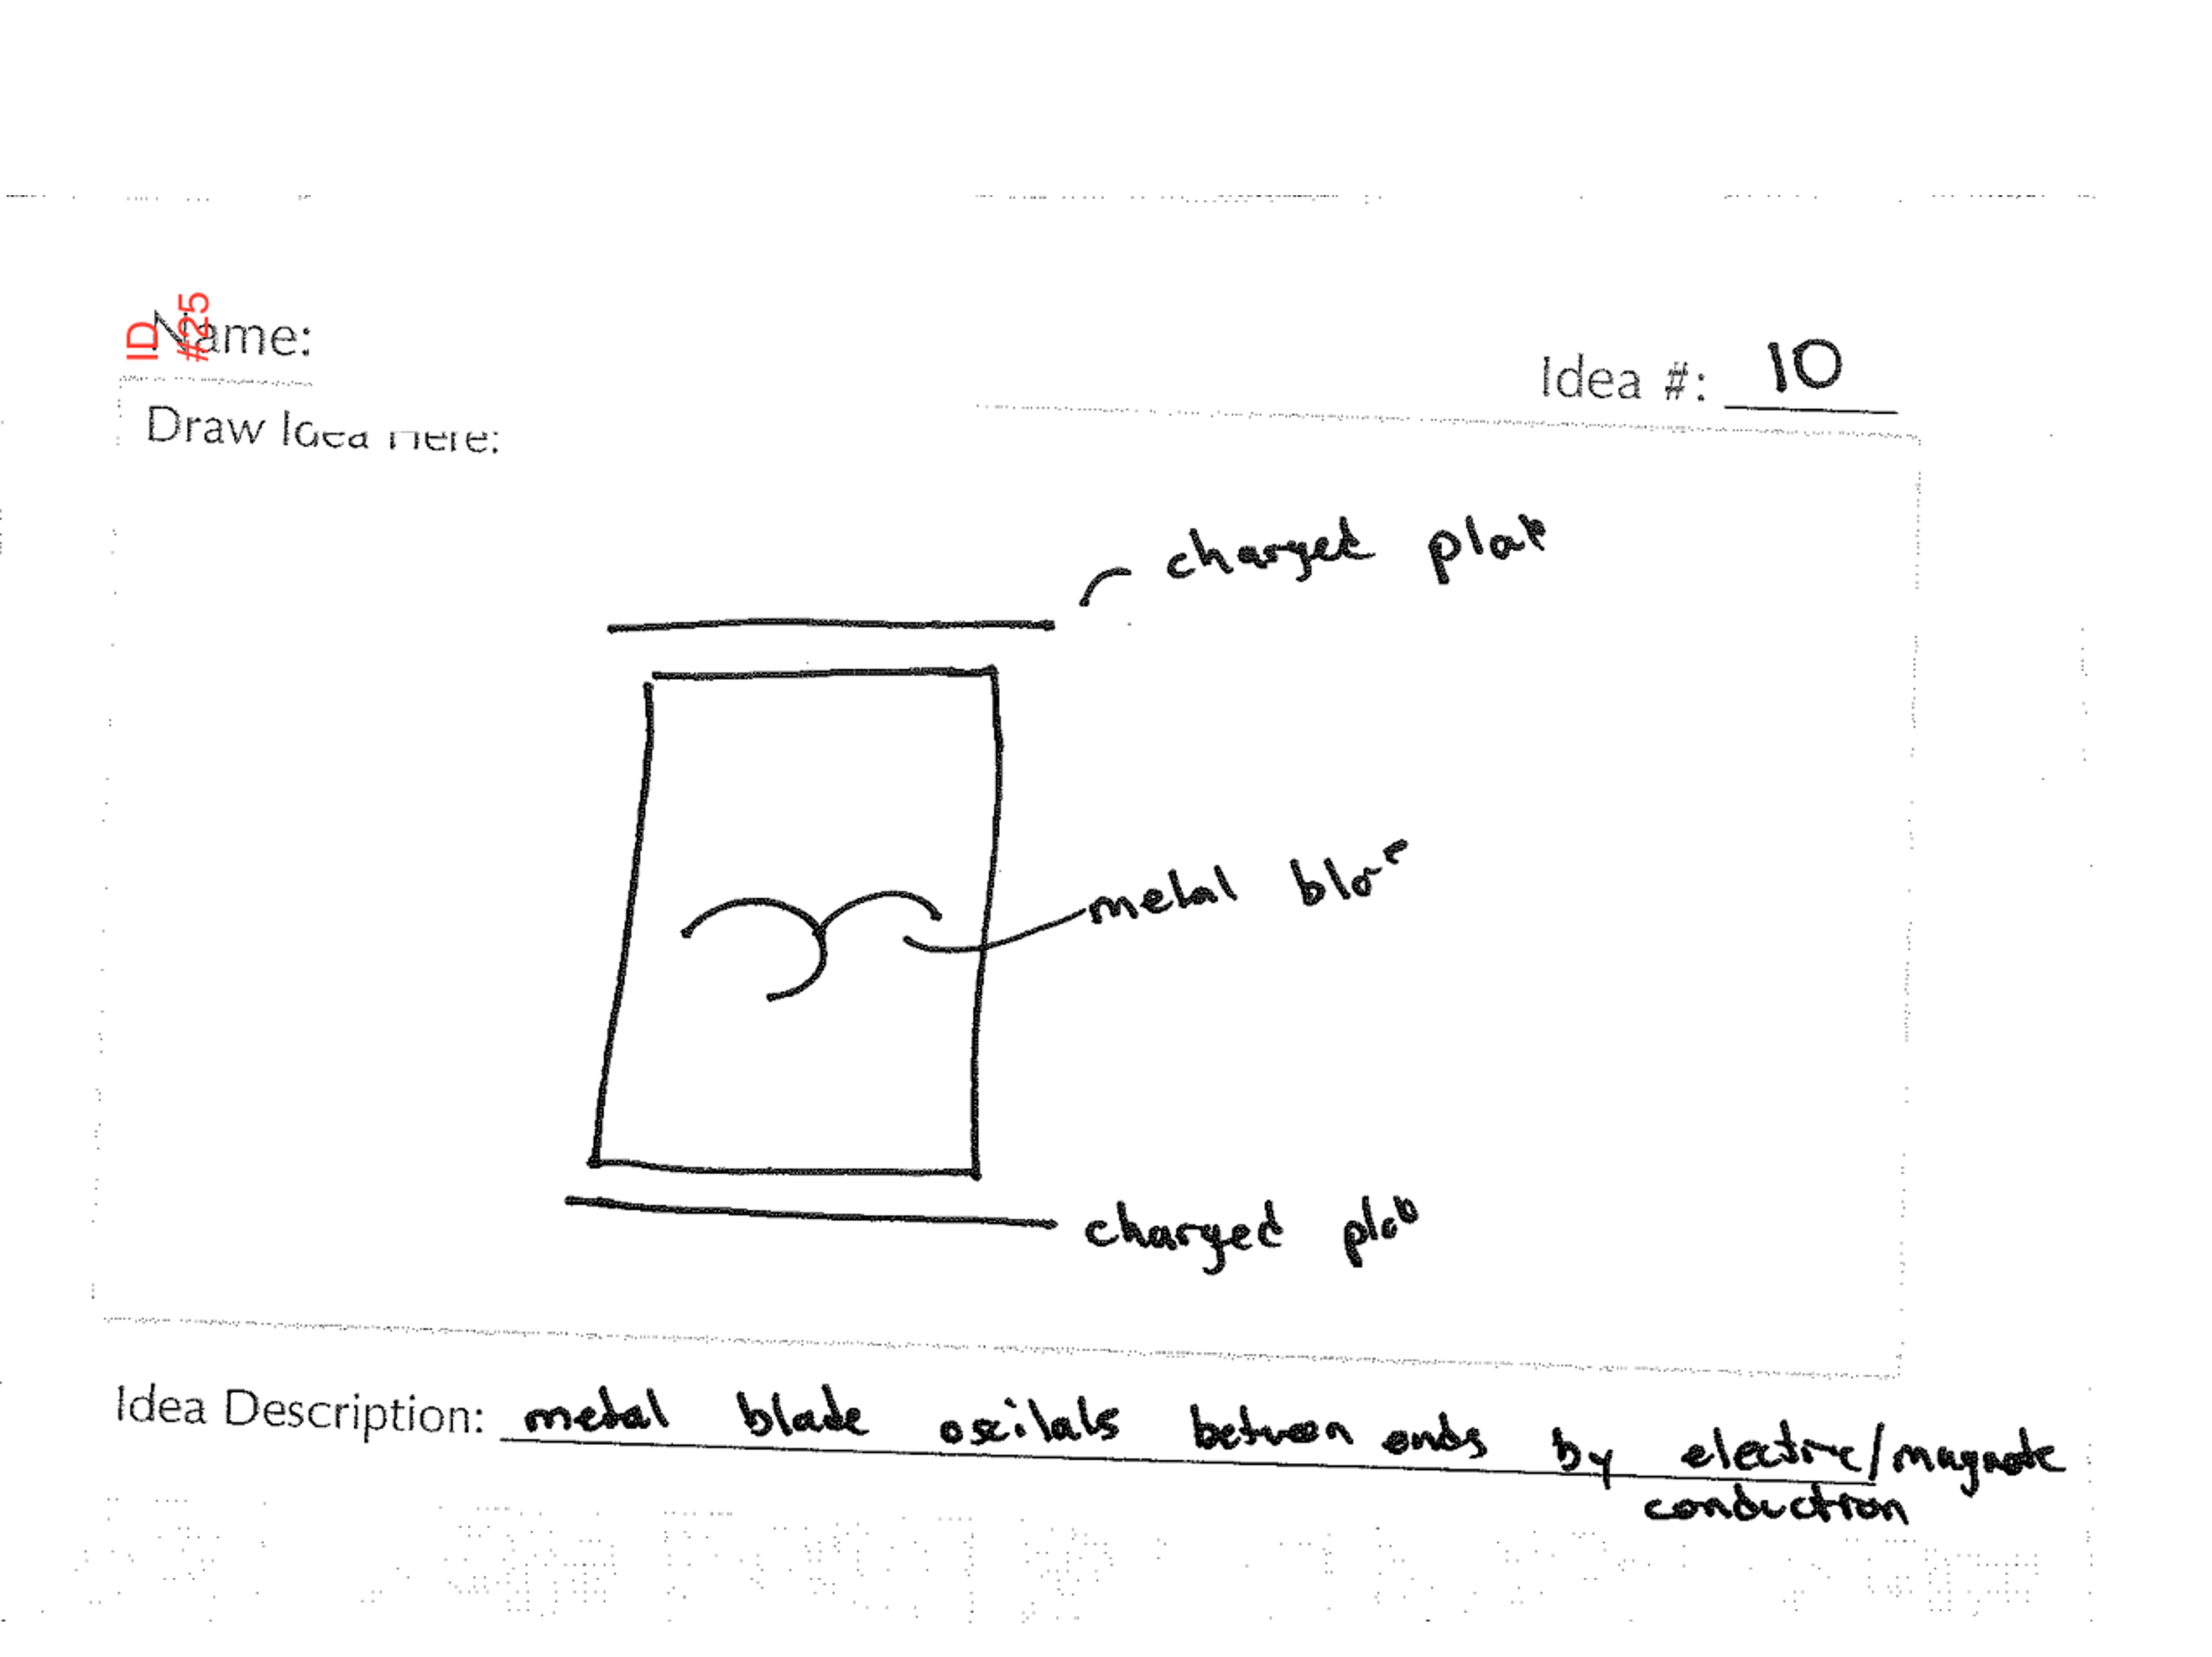 ID
#25
Name:
Idea #: 10
Draw Idea Here:
charged plat
metal
charged
Idea Description: metal blade oscilats between ends by electric/magnetic
conduction